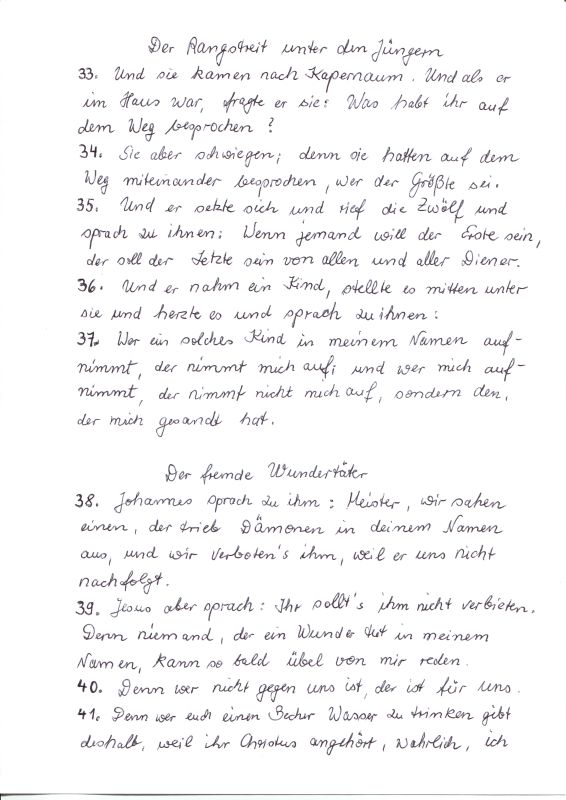 Der Rangstreit unter den Jüngern
33. Und sie kamen nach Kapernaum. Und als er
im Haus war, fragte er sie: Was habt ihr auf
dem Weg besprochen?
34. Sie aber schwiegen; denn sie hatten auf dem
Weg miteinander besprochen, wer der Größte sei.
35. Und er setzte sich und rief die Zwölf und
sprach zu ihnen: Wenn jemand will der Erste sein,
der soll der Letzte sein von allen und aller Diener.
36. Und er nahm ein Kind, stellte es mitten unter
sie und herzte es und sprach zu ihnen:
37. Wer ein solches Kind in meinem Namen auf-
nimmt, der nimmt mich auf; und wer mich auf-
nimmt, der nimmt nicht mich auf, sondern den,
der mich gesandt hat.
Der fremde Wundertäter
38. Johannes sprach zu ihm: Meister, wir sahen
einen, der trieb Dämonen in deinem Namen
aus, und wir verboten's ihm, weil er uns nicht
nachfolgt.
39. Jesus aber sprach: Ihr sollt's ihm nicht verbieten.
Denn niemand, der ein Wunder tut in meinem
Namen, kann so bald übel von mir reden.
40. Denn wer nicht gegen uns ist, der ist für uns.
41. Denn wer euch einen Becher Wasser zu trinken gibt
deshalb, weil ihr Christus angehört, wahrlich, ich